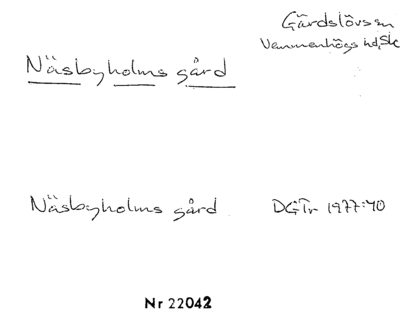 Gärdslövs sn
Vemmenhögs hd, Sk
Näsbyholms gård
Näsbyholms gård DGTr 1977:40
Nr 22042